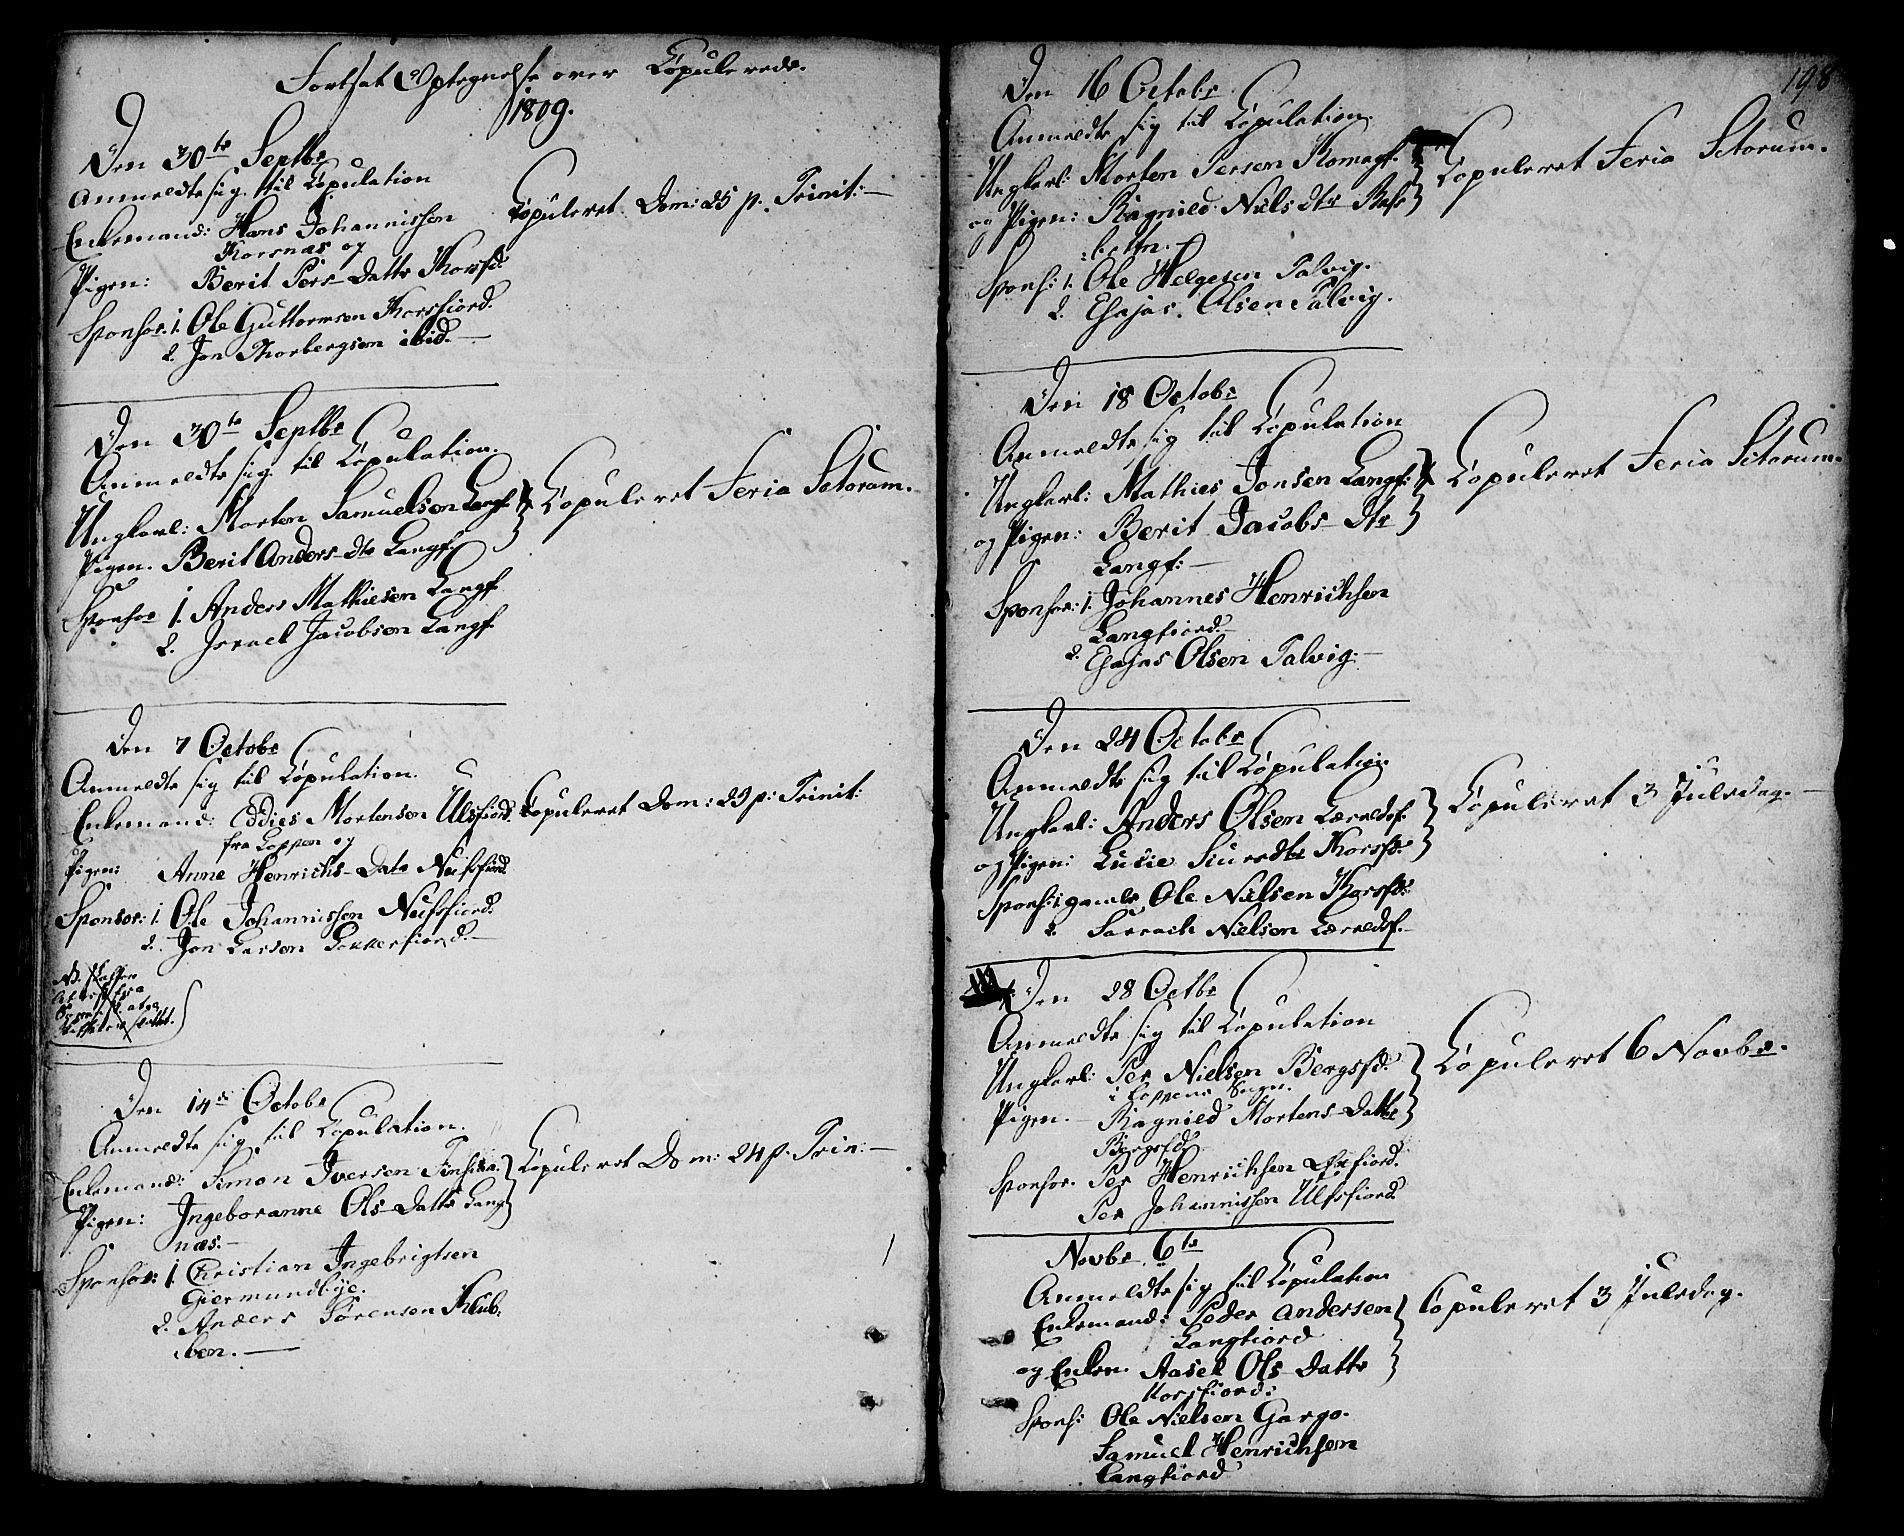 Fortsat Optegnelse over Copulerede.
1809.
Den 30te Septbr
Anmeldte sig til Copulation
Enkemand: Hans Johannissen
Korsnæs og
Pigen: Berit Pers-Datter Korsfd:
Sponsor: 1. Ole Guttormsen Korsfiord.
2. Jon Thorbergsen ibid. —
Copuleret Dom: 25 p. Trinit: —
Den 30te Septbr
Anmeldte sig til Copulation.
Ungkarl: Morten Samuelsen Langf:
Pigen. Berit Anders-Dtr Langf:
Sponsor 1. Anders Mathiesen Langf
2. Israel Jacobsen Langf.
Copuleret Feria Sctorum.
Den 7 Octobr
Anmeldte sig til Copulation.
Enkemand: Eddies Mortensen Ulsfiord.
fra Loppen og
Pigen: Anne Henrichs-Datr Neufsfiord
Sponsor: 1 Ole Johannissen Neufsfiord.
2. Jon Larsen Lokkerfiord. —
Copuleret Dom: 23 p: Trinit:
Den 14de Octobr
Anmeldte sig til Copulation.
Enkemand: Simon Iversen
Pigen: Ingeboranne Ols-Datter Lang
næs. —
Sponsor: 1. Christian Ingebrigtsen
Giermundbye.
2. Anders Sørensen Klub.
ben. —
Copuleret Dom: 24 p. Trin: —
198
Den 16 Octobr
Anmeldte sig til Copulation.
Ungkarl: Morten Persen Komagf.
og Pigen: Ragnild Niels Dtr Rafs
:botn. —
Spons: 1. Ole Helgesen Talvig.
2. Esajas. Olsen Talvig.
Copuleret Feria Sctorum.
Den 18 Octobr
Anmeldte sig til Copulation
Ungkarl: Mathies Jonsen Langf:
og Pigen: Berit Jacobs-Dtr
Langf: —
Sponsor: 1. Johannes Henrichsen
Langfiord. —
2. Esajas Olsen Talvig. —
Copuleret Feria Sctorum.
Den 24 Octobr
Anmeldte sig til Copulation
Ungkarl: Anders Olsen Lærredsf.
og Pigen: Lucie Siurdtr Korsfd:
Spons: 1. gamle Ole Nielsen Korsfd:
2. Sarrach Nielsen Lærredsf. —
Copuleret 3 Juledag. —
Den 28 Octbr
Anmeldte sig til Copulation
Ungkarl: Per Nielsen Bergsfd:
i Loppens Sogn.
Pigen. — Ragnild Mortens-Datter
Bergsfd.
Sponsor. Per Henrichsen Øxfiord.
Per Johannissen Ulfsfiord.
Copuleret 6 Novbr.
Novbr 6te
Anmeldte sig til Copulation
Enkemand: Peder Andersen
Langfiord
og Enken. Aasel Ols-Datter
Korsfiord:
Spons: Ole Nielsen Gargo.
Samuel Henrichsen
Langfiord
Copuleret 3 Juledag.